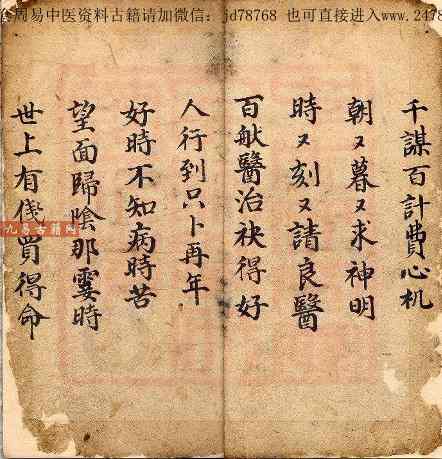 周易中医资料古籍请加微信：jd78768 也可直接进入www.2478
千謀百計費心机
朝々暮々求神明
時々刻々請良醫
百般醫治袂得好
人行到只卜再年
好時不知病時苦
望面歸陰那霎時
世上有錢買得命
九易古籍网